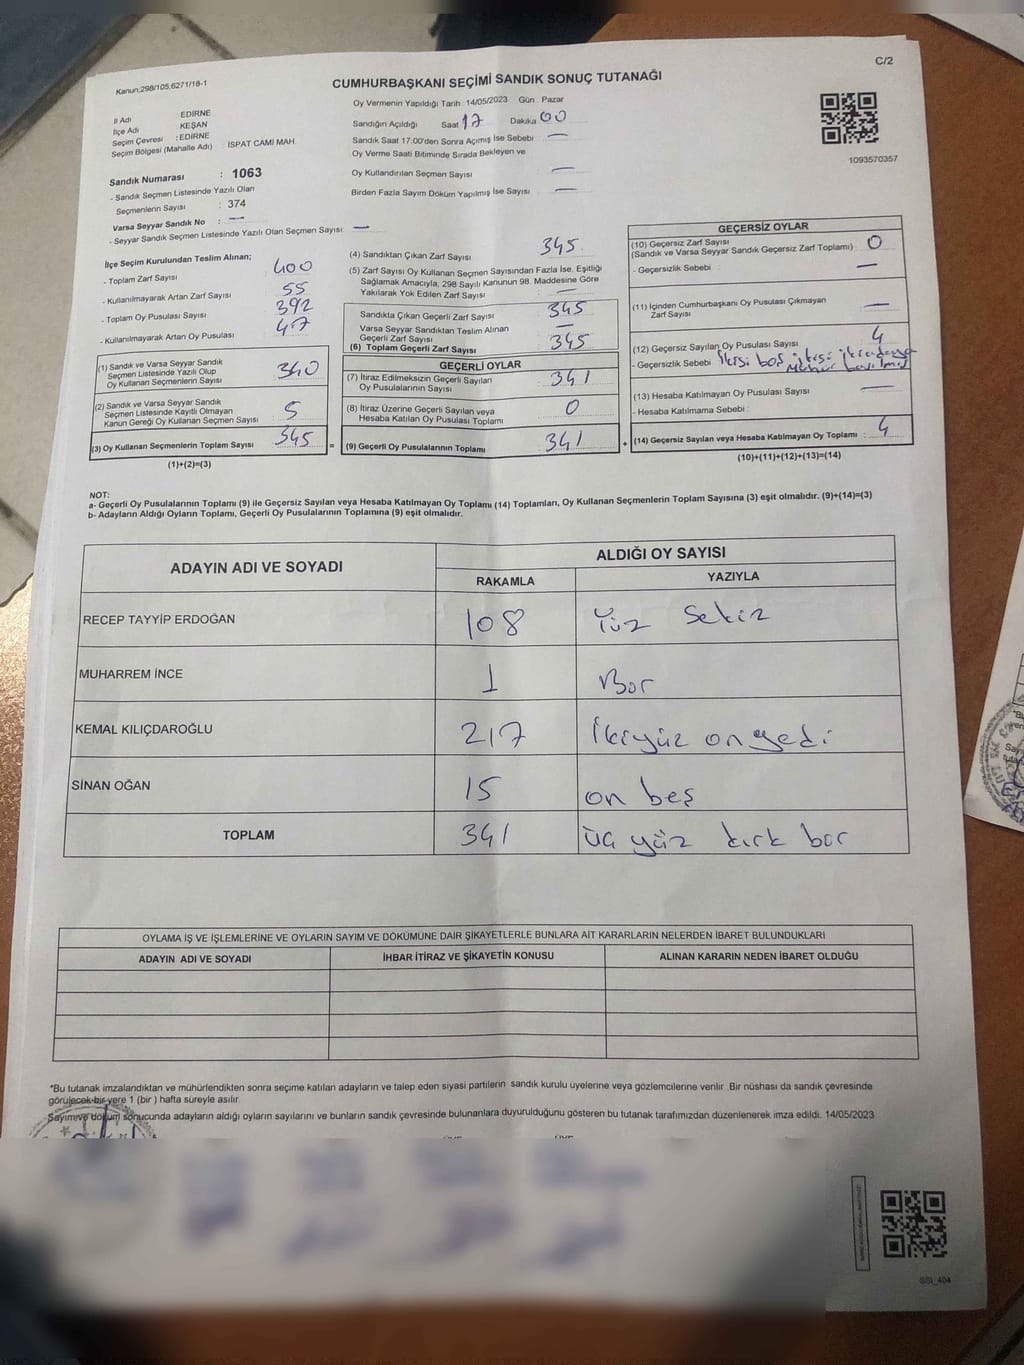 C/2
Kanun;298/105,6271/18-1
CUMHURBAŞKANI SEÇİMİ SANDIK SONUÇ TUTANAĞI
İl Adı EDİRNE
İlçe Adı KEŞAN
Seçim Çevresi : EDİRNE
Seçim Bölgesi (Mahalle Adı) İSPAT CAMİ MAH.
Sandık Numarası : 1063
- Sandık Seçmen Listesinde Yazılı Olan
Seçmenlerin Sayısı : 374
Varsa Seyyar Sandık No : —
- Seyyar Sandık Seçmen Listesinde Yazılı Olan Seçmen Sayısı: —
Oy Vermenin Yapıldığı Tarih :14/05/2023 Gün : Pazar
Sandığın Açıldığı Saat 17 Dakika 00
Sandık Saat 17:00'den Sonra Açımış İse Sebebi : —
Oy Verme Saati Bitiminde Sırada Bekleyen ve
Oy Kullandırılan Seçmen Sayısı : —
Birden Fazla Sayım Döküm Yapılmış İse Sayısı : —
1093570357
İlçe Seçim Kurulundan Teslim Alınan;
- Toplam Zarf Sayısı : 400
- Kullanılmayarak Artan Zarf Sayısı : 55
- Toplam Oy Pusulası Sayısı : 392
- Kullanılmayarak Artan Oy Pusulası : 47
(1) Sandık ve Varsa Seyyar Sandık
Seçmen Listesinde Yazılı Olup
Oy Kullanan Seçmenlerin Sayısı : 340
(2) Sandık ve Varsa Seyyar Sandık
Seçmen Listesinde Kayıtlı Olmayan
Kanun Gereği Oy Kullanan Seçmen Sayısı : 5
(3) Oy Kullanan Seçmenlerin Toplam Sayısı : 345 =
(1)+(2)=(3)
(4) Sandıktan Çıkan Zarf Sayısı : 345
(5) Zarf Sayısı Oy Kullanan Seçmen Sayısından Fazla İse, Eşitliği
Sağlamak Amacıyla, 298 Sayılı Kanunun 98. Maddesine Göre
Yakılarak Yok Edilen Zarf Sayısı : —
Sandıkta Çıkan Geçerli Zarf Sayısı : 345
Varsa Seyyar Sandıktan Teslim Alınan
Geçerli Zarf Sayısı : —
(6) Toplam Geçerli Zarf Sayısı : 345
GEÇERLİ OYLAR
(7) İtiraz Edilmeksizin Geçerli Sayılan
Oy Pusulalarının Sayısı : 341
(8) İtiraz Üzerine Geçerli Sayılan veya
Hesaba Katılan Oy Pusulası Toplamı : 0
(9) Geçerli Oy Pusulalarının Toplamı : 341 +
GEÇERSİZ OYLAR
(10) Geçersiz Zarf Sayısı
(Sandık ve Varsa Seyyar Sandık Geçersiz Zarf Toplamı) : 0
- Geçersizlik Sebebi : —
(11) İçinden Cumhurbaşkanı Oy Pusulası Çıkmayan
Zarf Sayısı : —
(12) Geçersiz Sayılan Oy Pusulası Sayısı : 4
- Geçersizlik Sebebi : ikisi boş ikisi
(13) Hesaba Katılmayan Oy Pusulası Sayısı : —
- Hesaba Katılmama Sebebi :
(14) Geçersiz Sayılan veya Hesaba Katılmayan Oy Toplamı : 4
(10)+(11)+(12)+(13)=(14)
NOT:
a- Geçerli Oy Pusulalarının Toplamı (9) ile Geçersiz Sayılan veya Hesaba Katılmayan Oy Toplamı (14) Toplamları, Oy Kullanan Seçmenlerin Toplam Sayısına (3) eşit olmalıdır. (9)+(14)=(3)
b- Adayların Aldığı Oyların Toplamı, Geçerli Oy Pusulalarının Toplamına (9) eşit olmalıdır.
ADAYIN ADI VE SOYADI ALDIĞI OY SAYISI
RAKAMLA YAZIYLA
RECEP TAYYİP ERDOĞAN 108 Yüz Sekiz
MUHARREM İNCE 1 Bir
KEMAL KILIÇDAROĞLU 217 İkiyüz onyedi
SİNAN OĞAN 15 on beş
TOPLAM 341 üç yüz kırk bir
OYLAMA İŞ VE İŞLEMLERİNE VE OYLARIN SAYIM VE DÖKÜMÜNE DAİR ŞİKAYETLERLE BUNLARA AİT KARARLARIN NELERDEN İBARET BULUNDUKLARI
ADAYIN ADI VE SOYADI İHBAR İTİRAZ VE ŞİKAYETİN KONUSU ALINAN KARARIN NEDEN İBARET OLDUĞU
*Bu tutanak imzalandıktan ve mühürlendikten sonra seçime katılan adayların ve talep eden siyasi partilerin sandık kurulu üyelerine veya gözlemcilerine verilir. Bir nüshası da sandık çevresinde
görülecek bir yere 1 (bir ) hafta süreyle asılır.
Sayım ve döküm sonucunda adayların aldığı oyların sayılarını ve bunların sandık çevresinde bulunanlara duyurulduğunu gösteren bu tutanak tarafımızdan düzenlenerek imza edildi. 14/05/2023
SSI_404